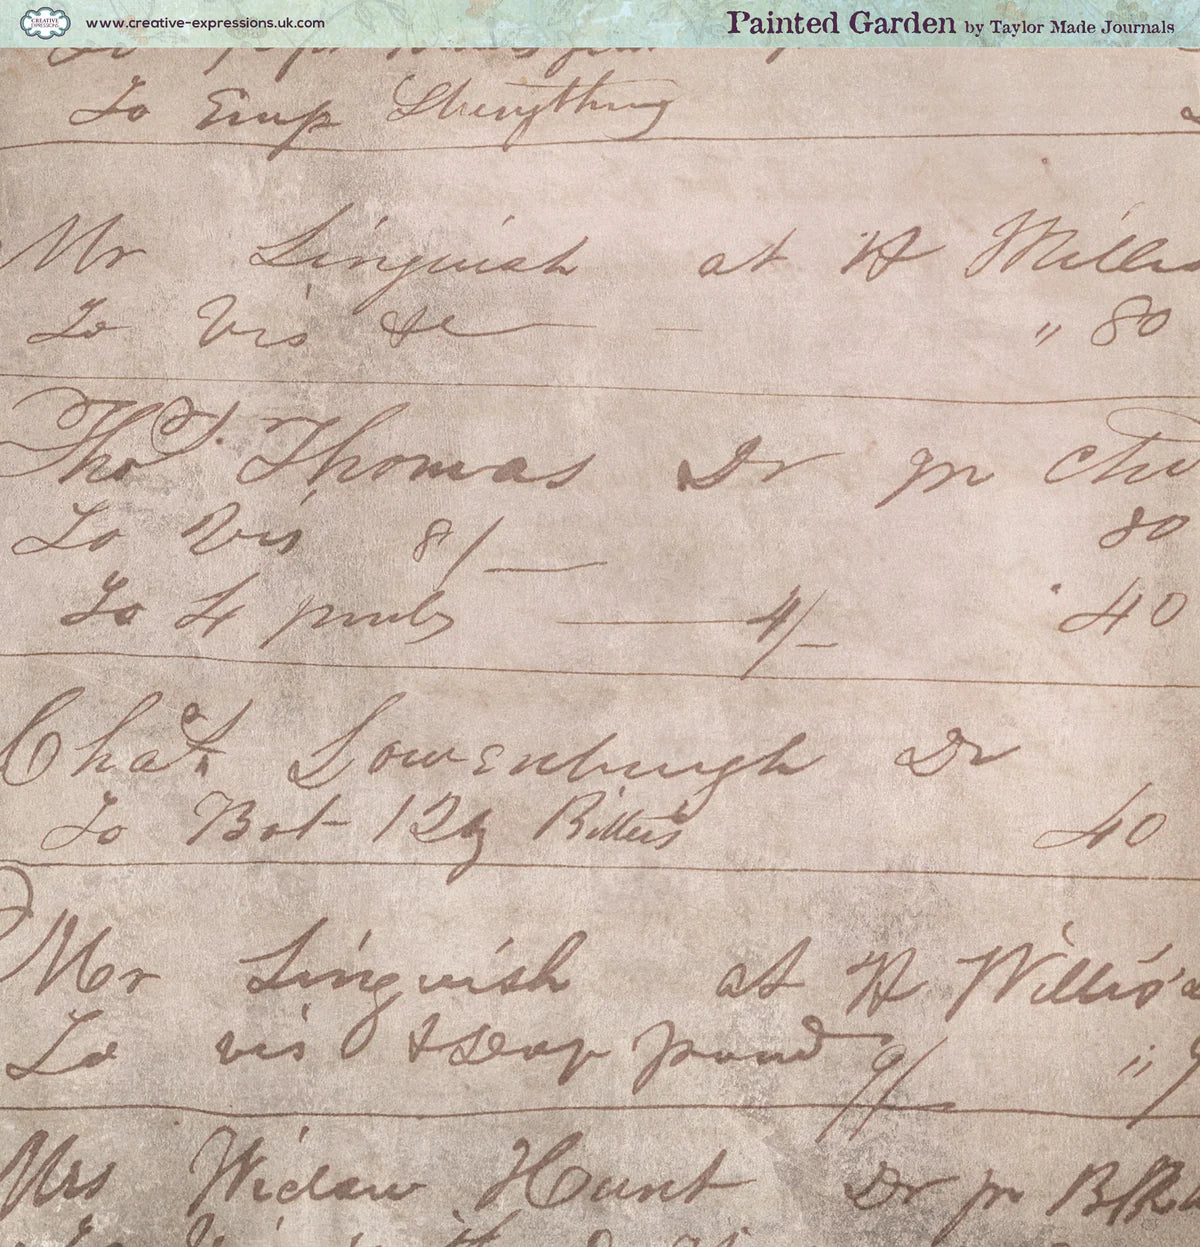 CREATIVE EXPRESSIONS
www.creative-expressions.uk.com
Painted Garden by Taylor Made Journals
To Emp Strengthning
Mr Linguish at H Willis
To Vis &c — — " 80
Thos. Thomas Dr pr
To Vis 8/— 80
To 4 — 4/— 40
Chas. Lowenburgh Dr
To Bot 12 Bitters 40
Mr Linguish at H Willis's
To vis & 9/ "
Mrs Widow Hunt Dr pr